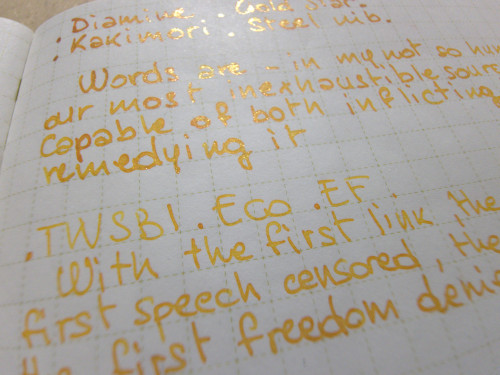 . Diamine . Gold Star.
. Kakimori . Steel nib.
Words are - in my not so hum
our most inexhaustible sour
Capable of both inflicting
remedying it
. TWSBI . Eco . EF .
With the first link, the
first speech censored, the
the first freedom denie